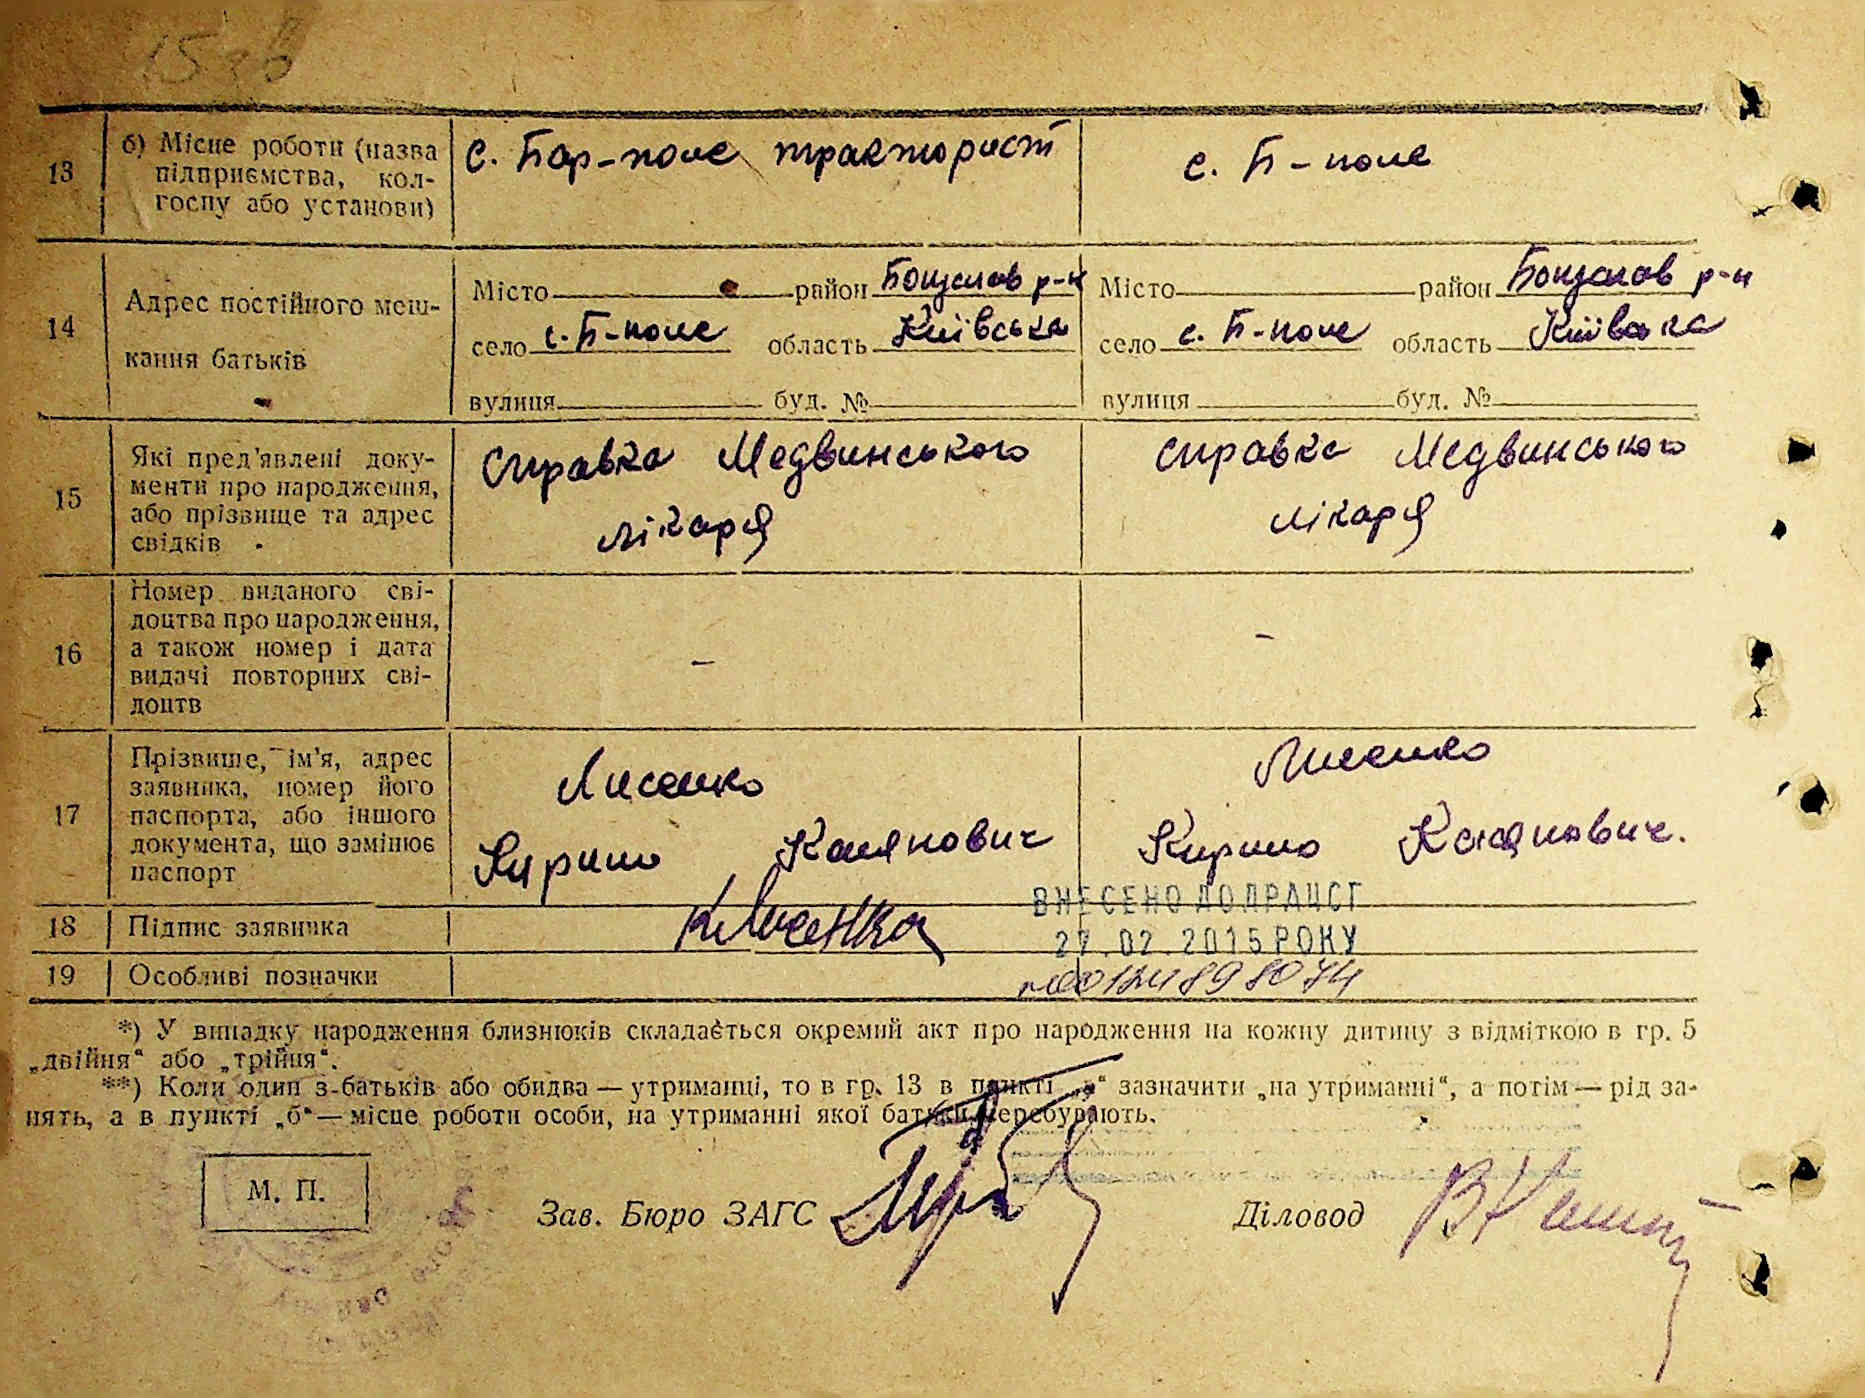 13
б) Місце роботи (назва
підприємства, кол-
госпу або установи)
с. Бар-поле тракторист
с. Б-поле
14
Адрес постійного меш-
кання батьків
Місто район Богуслав р-н
село с. Б-поле область Київська
вулиця буд. №
Місто район Богуслав р-н
село с. Б-поле область Київська
вулиця буд. №
15
Які пред'явлені доку-
менти про народження,
або прізвище та адрес
свідків
Справка Медвинського
лікаря
Справка Медвинського
лікаря
16
Номер виданого сві-
доцтва про народження,
а також номер і дата
видачі повторних сві-
доцтв
–
–
17
Прізвище, ім'я, адрес
заявника, номер його
паспорта, або іншого
документа, що замінює
паспорт
Лисенко
Кирило
Лисенко
Кирило
18
Підпис заявника
ВНЕСЕНО ДО ДРАЦСГ
27.02.2015 РОКУ
19
Особливі позначки
*) У випадку народження близнюків складається окремий акт про народження на кожну дитину з відміткою в гр. 5
„двійня“ або „трійня“.
**) Коли один з-батьків або обидва — утриманці, то в гр. 13 в пункті зазначити „на утриманні“, а потім — рід за-
нять, а в пункті „б“ — місце роботи особи, на утриманні якої батьки перебувають.
М. П.
Зав. Бюро ЗАГС
Діловод